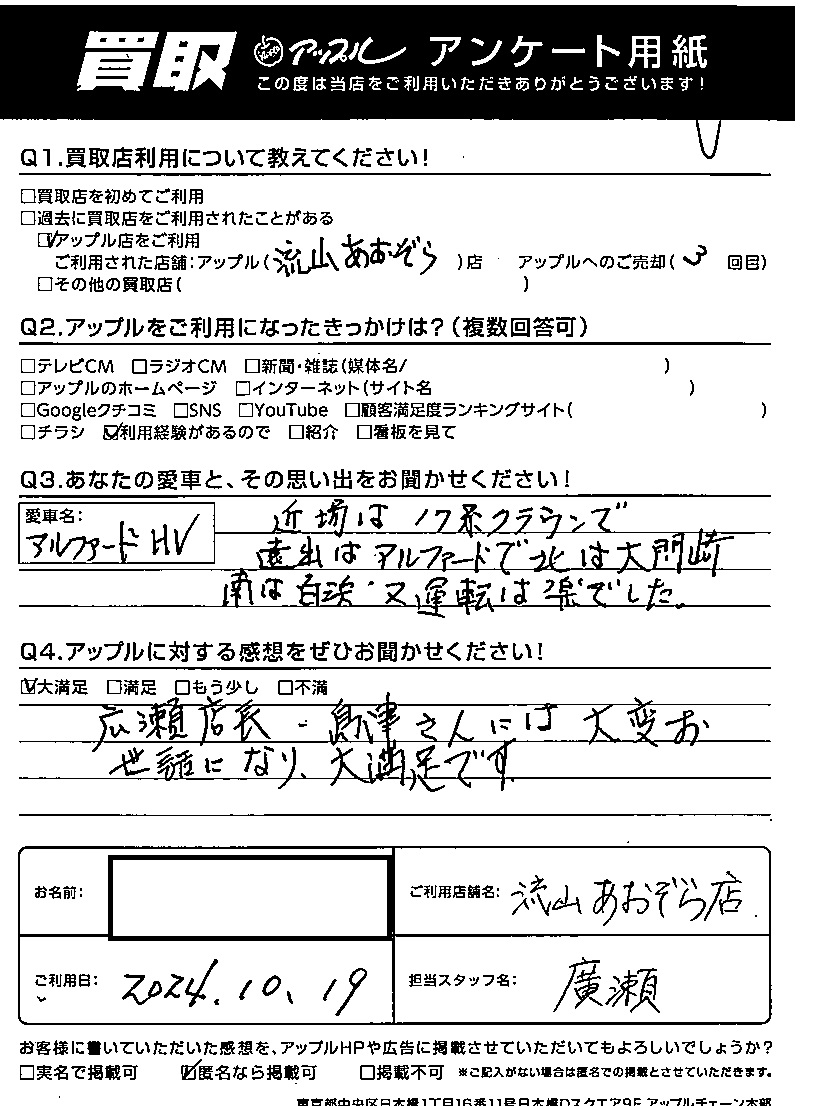 買取 アップル アンケート用紙
この度は当店をご利用いただきありがとうございます!
Q1.買取店利用について教えてください!
□買取店を初めてご利用
□過去に買取店をご利用されたことがある
☑アップル店をご利用
ご利用された店舗:アップル(流山あおぞら)店 アップルへのご売却(3回目)
□その他の買取店( )
Q2.アップルをご利用になったきっかけは?(複数回答可)
□テレビCM □ラジオCM □新聞・雑誌(媒体名/ )
□アップルのホームページ □インターネット(サイト名 )
□Googleクチコミ □SNS □YouTube □顧客満足度ランキングサイト( )
□チラシ ☑利用経験があるので □紹介 □看板を見て
Q3.あなたの愛車と、その思い出をお聞かせください!
愛車名:
アルファードHV
近場は17系クラウンで
遠出はアルファードで北は大間崎
南は白浜・又運転は楽でした。
Q4.アップルに対する感想をぜひお聞かせください!
☑大満足 □満足 □もう少し □不満
広瀬店長・島津さんには大変お
世話になり、大満足です
お名前:
ご利用店舗名: 流山あおぞら店
ご利用日: 2024.10.19
担当スタッフ名: 廣瀬
お客様に書いていただいた感想を、アップルHPや広告に掲載させていただいてもよろしいでしょうか?
□実名で掲載可 ☑匿名なら掲載可 □掲載不可 ※ご記入がない場合は匿名での掲載とさせていただきます。
東京都中央区日本橋1丁目16番11号日本橋Dスクエア9F アップルチェーン本部